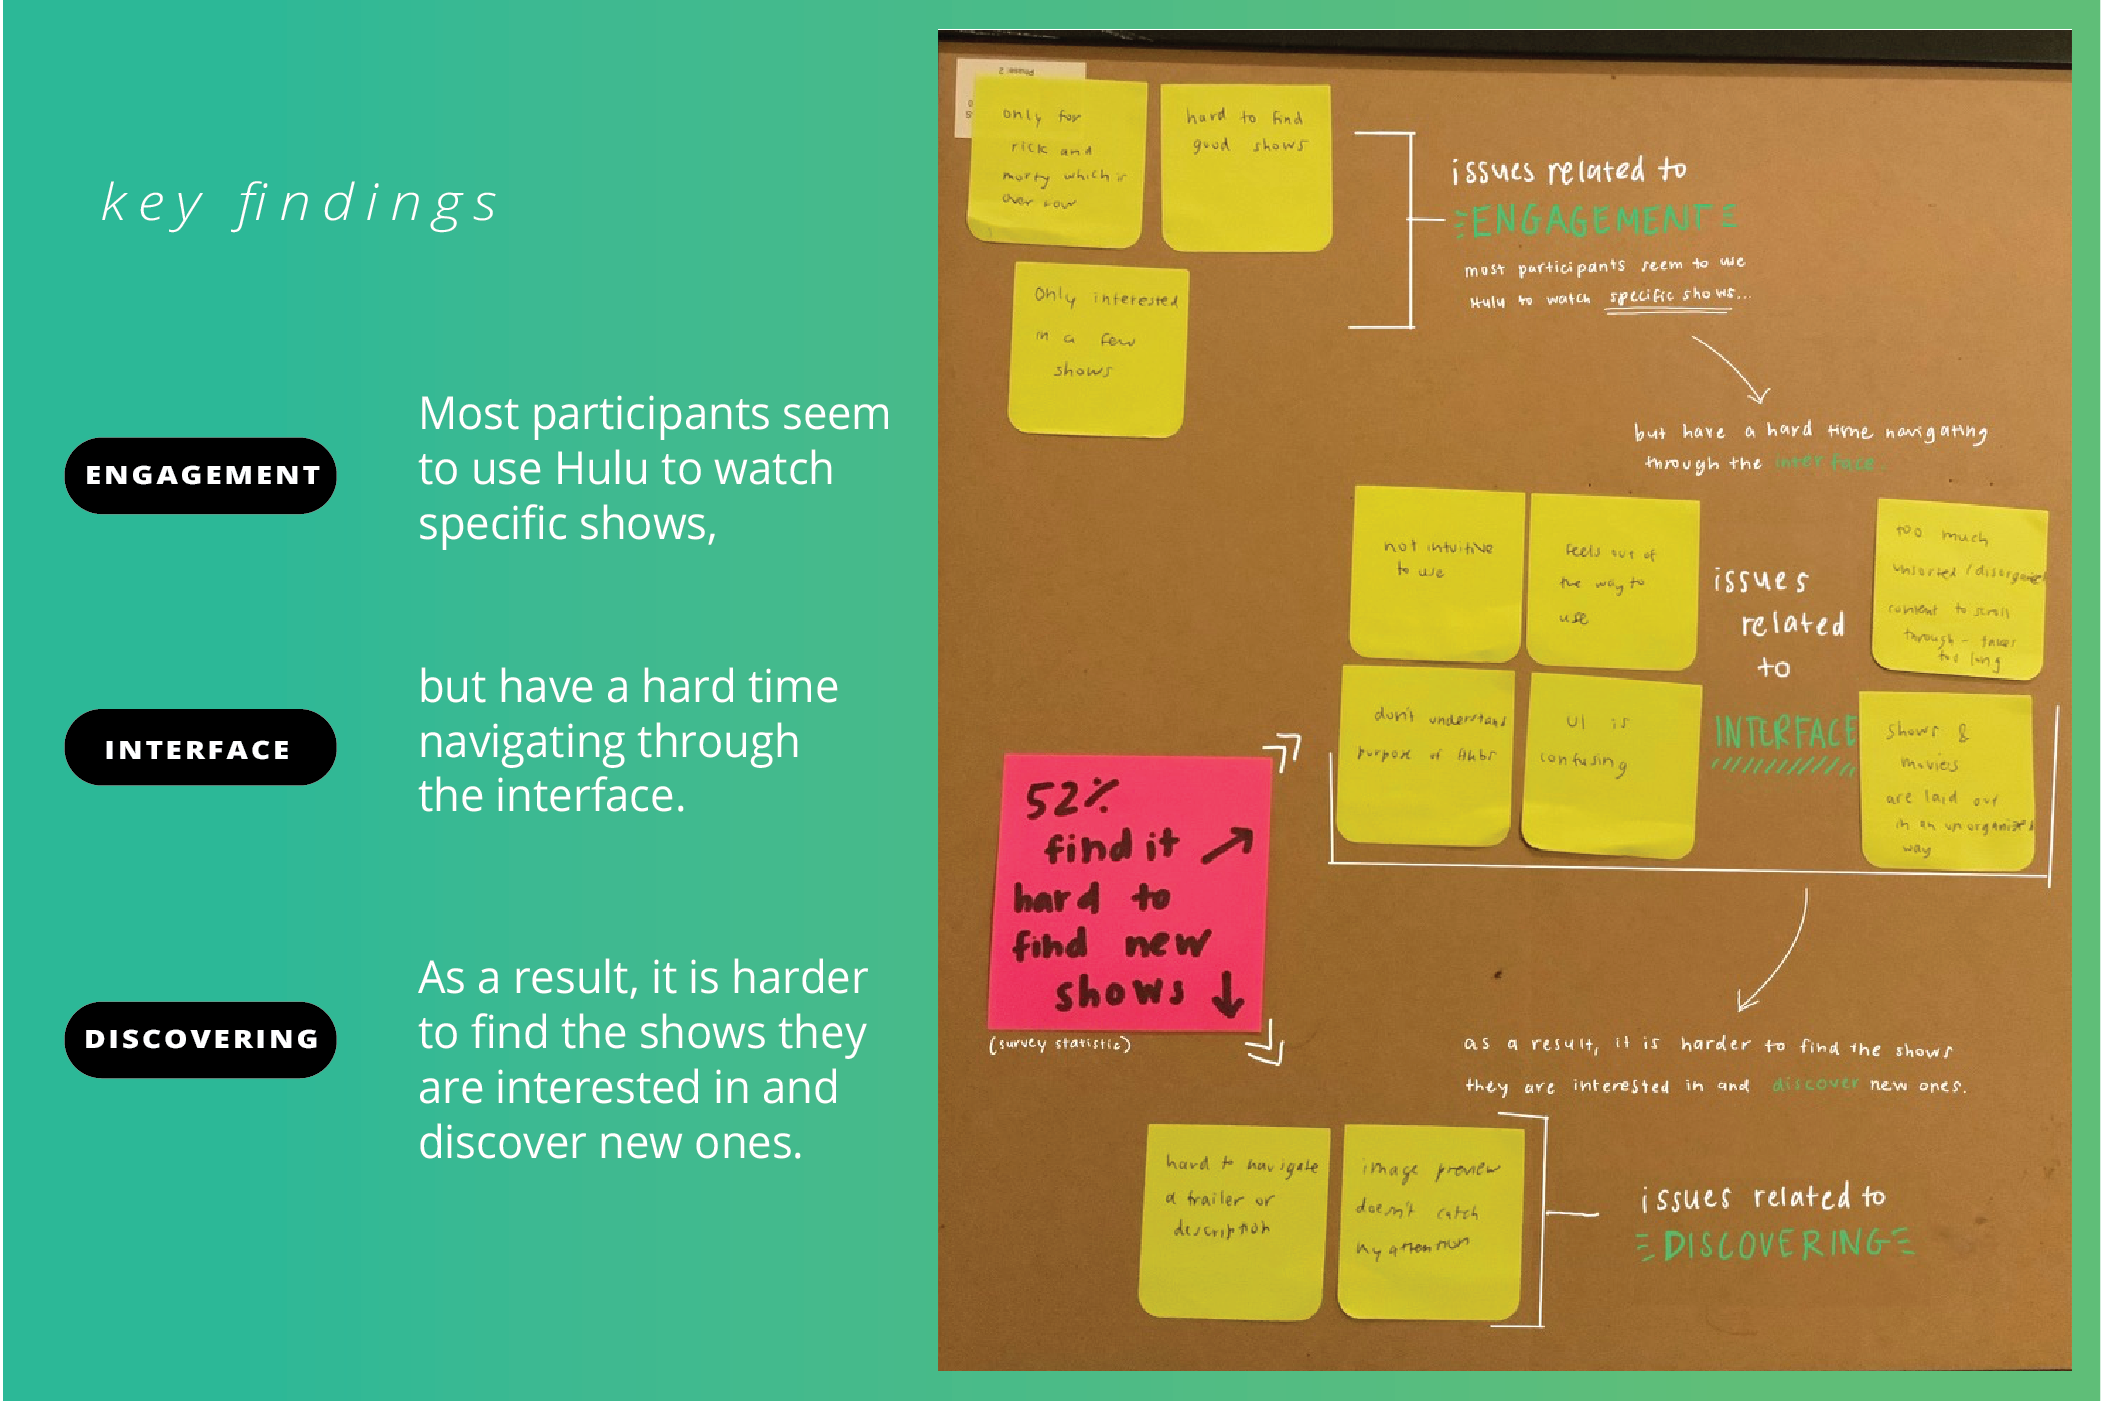 key findings
ENGAGEMENT
Most participants seem
to use Hulu to watch
specific shows,
INTERFACE
but have a hard time
navigating through
the interface.
DISCOVERING
As a result, it is harder
to find the shows they
are interested in and
discover new ones.
Phase 2
only for
rick and
morty which is
over now
hard to find
good shows
Only interested
in a few
shows
issues related to
ENGAGEMENT
most participants seem to use
Hulu to watch specific shows...
but have a hard time navigating
through the interface.
not intuitive
to use
Feels out of
the way to
use
don't understand
purpose of
UI is
confusing
issues
related
to
INTERFACE
too much
unsorted / disorganized
content to scroll
through - takes
too long
shows &
movies
are laid out
in an unorganized
way
52%
find it
hard to
find new
shows
(survey statistic)
as a result, it is harder to find the shows
they are interested in and discover new ones.
hard to navigate
a trailer or
description
image preview
doesn't catch
my attention
issues related to
DISCOVERING